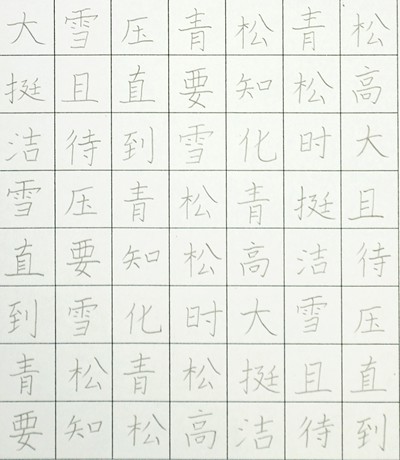 大雪压青松青松
挺且直要知松高
洁待到雪化时大
雪压青松青挺且
直要知松高洁待
到雪化时大雪压
青松青松挺且直
要知松高洁待到